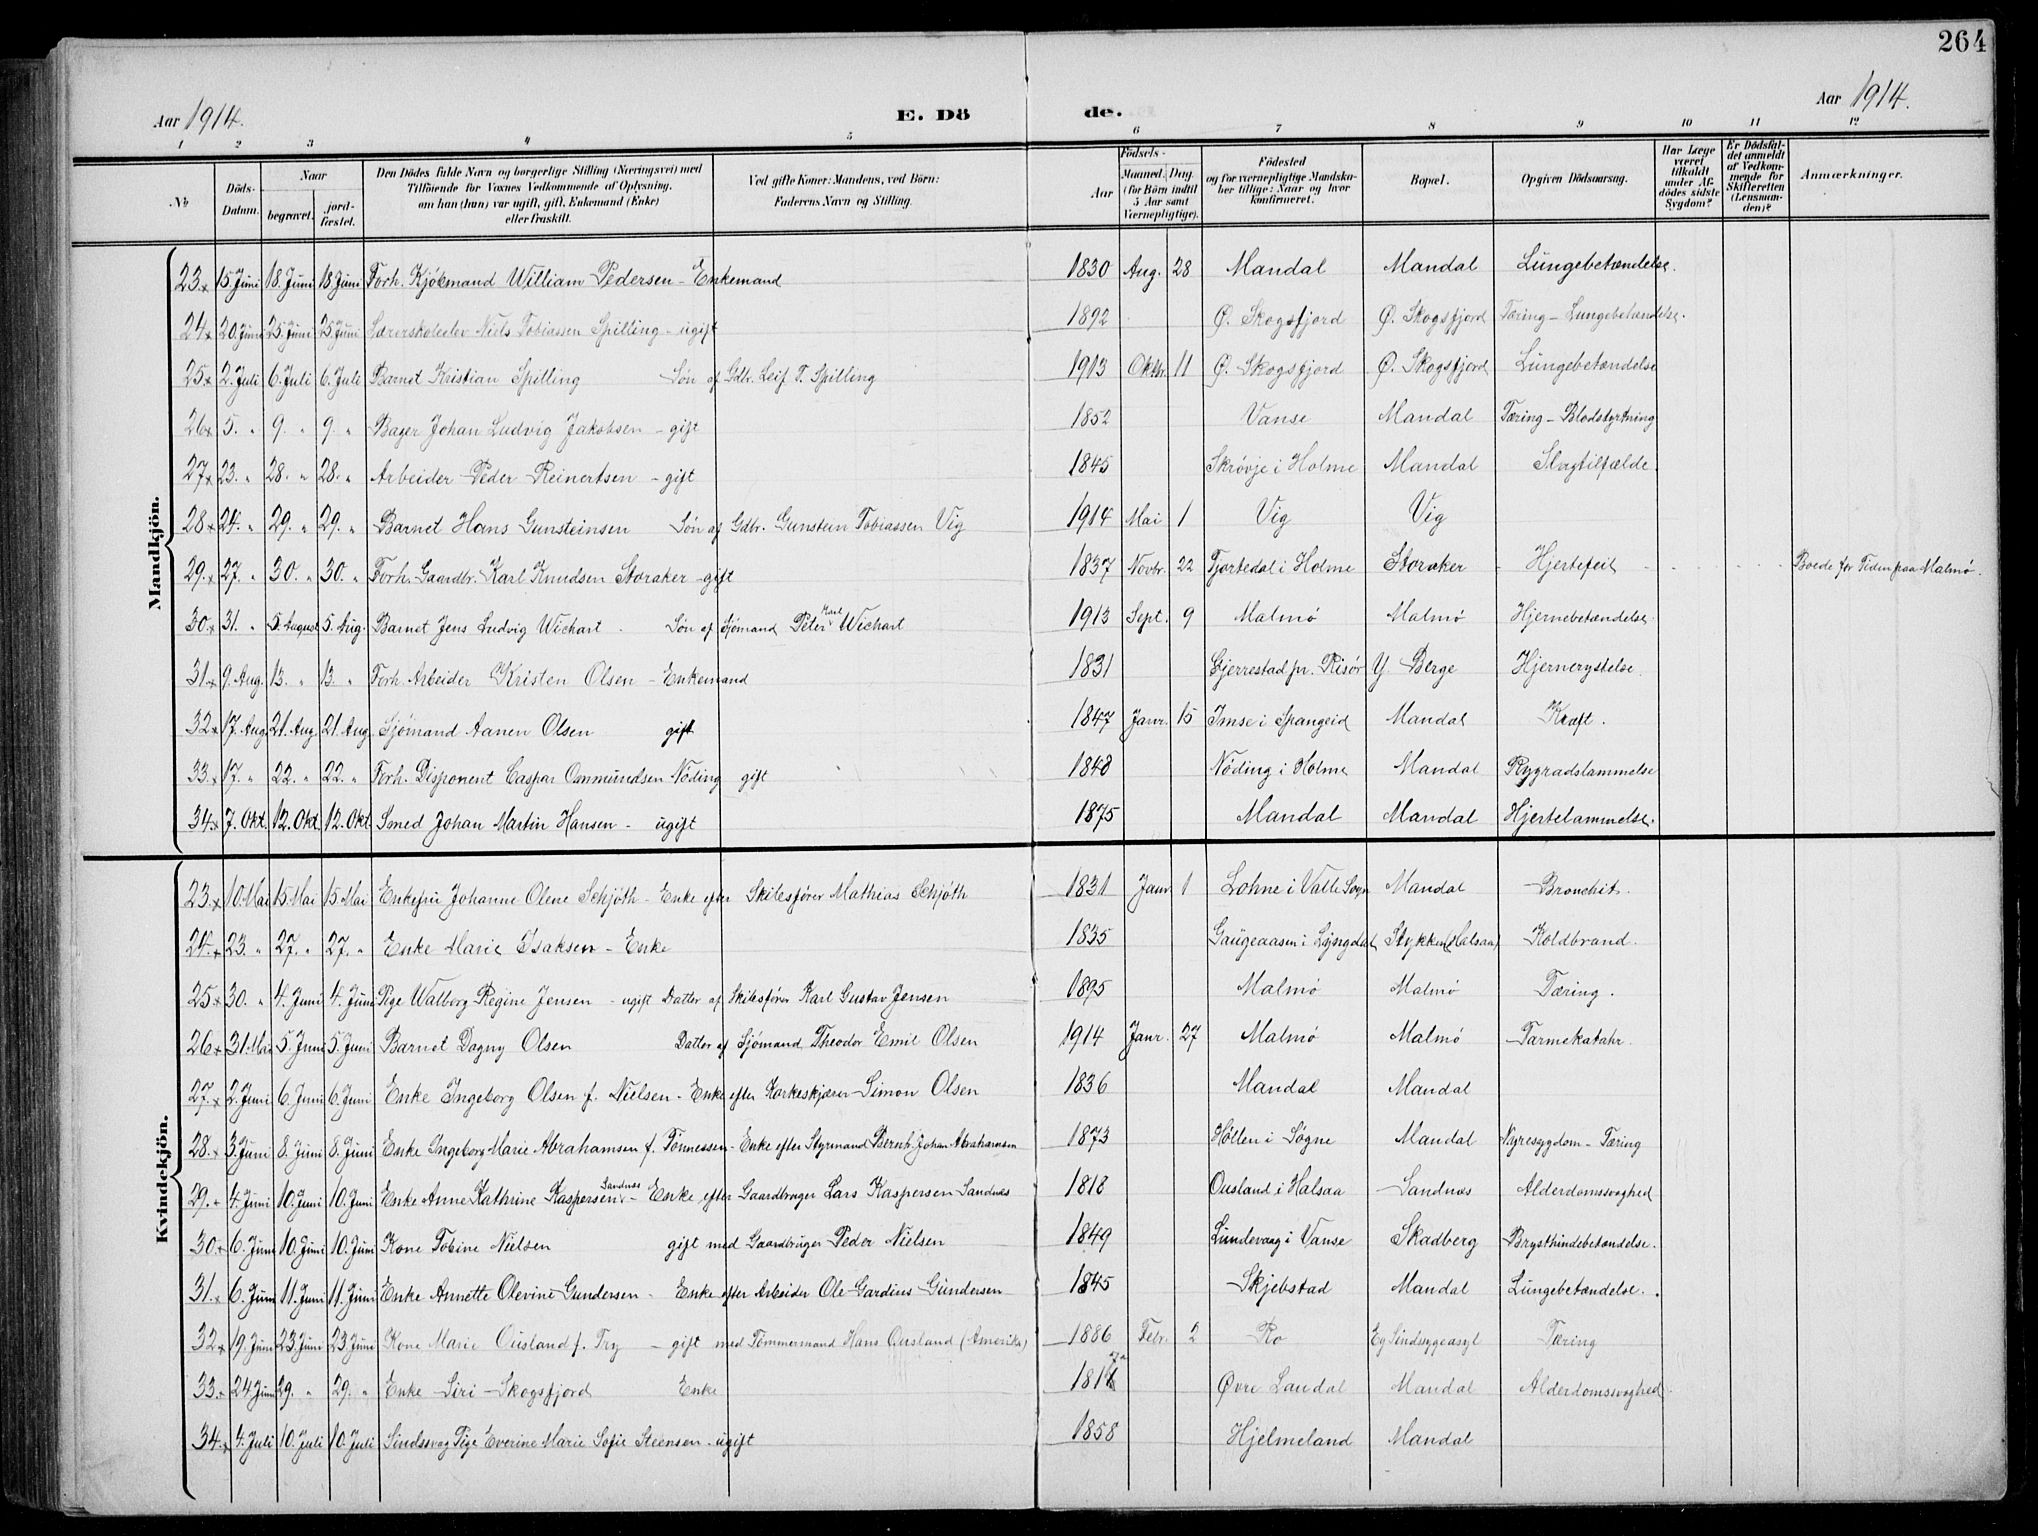 264
Aar 1914. E. Dö de. Aar 1914.
1 2 3 4 5 6 7 8 9 10 11 12
No Döds-Datum. Naar begravet. jord-fæstet. Den Dödes fulde Navn og borgerlige Stilling (Næringsvei) med Tilföiende for Voxnes Vedkommende af Oplysning, om han (hun) var ugift, gift, Enkemand (Enke) eller fraskilt. Ved gifte Koner: Mandens, ved Börn: Faderens Navn og Stilling. Födsels- Aar Maaned. Dag. (for Börn indtil 5 Aar samt Værnepligtige). Födested og for værnepligtige Mandskaber tillige: Naar og hvor konfirmeret. Bopæl. Opgiven Dödsaarsag. Har Læge været tilkaldt under Afdödes sidste Sygdom? Er Dödsfaldet anmeldt af Vedkommende for Skifteretten (Lensmanden)? Anmærkninger.
Mandkjön.
23. 15. Juni 18. Juni 18. Juni Forh. Kjøbmand William Pedersen - Enkemand 1830 Aug. 28 Mandal Mandal Lungebetændelse.
24 20. Juni 25. Juni 25. Juni Niels Tobiassen Spilling - ugift 1892 Ø. Skogsfjord Ø. Skogsfjord Tæring - Lungebetændelse.
25 2. Juli 6. Juli 6. Juli Barnet Kristian Spilling Søn af Gdbr. Leif T. Spilling 1913 Oktbr. 11 Ø. Skogsfjord Ø. Skogsfjord Lungebetændelse
26 5. " 9. " 9. " Bager Johan Ludvig Jakobsen - gift 1852 Vanse Mandal Tæring - Blodstyrtning
27 23. " 28. " 28. " Arbeider Peder Reinertsen - gift 1845 Skrøvje i Holme Mandal Slagtilfælde.
28 24. " 29. " 29. " Barnet Hans Gunsteinsen Søn af Gdbr. Gunstein Tobiassen Vig 1914 Mai 1 Vig Vig
29. 27. " 30. " 30. " Forh. Gaardbr. Karl Knudsen Storaker - gift 1837 Novbr. 22 i Holme Storaker Hjertefeil Boede for Tiden paa Malmø.
30. 31. " 5. August 5. Aug. Barnet Jens Ludvig Wichart Søn af Sjømand Peter Karl Wichart 1913 Sept. 9 Malmø Malmø Hjernebetændelse
31 9. Aug. 13. " 13. " Forh. Arbeider Kristen Olsen - Enkemand 1831 Gjerrestad pr. Risør Y. Berge Hjernerystelse.
32 17. Aug 21. Aug 21. Aug Sjømand Aanen Olsen gift 1847 Janr. 15 Imse i Spangeid Mandal Kræft.
33. 17. " 22. " 22. " Forh. Disponent Caspar Ommundsen Nøding gift 1848 Nøding i Holme Mandal Rygradslammelse
34 7. Okt. 12. Okt 12. Okt Smed Johan Martin Hansen - ugift 1875 Mandal Mandal Hjertelammelse.
Kvindekjön.
23 10. Mai 15. Mai 15. Mai Enkefru Johanne Olene Schjøth - Enke efter Skibsfører Mathias Schjøth 1831 Janr 1 Lohne i Valle Sogn Mandal Bronchit.
24. 23. " 27. " 27. " Enke Marie Isaksen - Enke 1835 i Lyngdal Stykken (Halsaa) Koldbrand.
25 30. " 4. Juni 4. Juni Pige Walborg Regine Jensen - ugift Datter af Skibsfører Karl Gustav Jensen 1895 Malmø Malmø Tæring.
26 31. Mai 5. Juni 5. Juni Barnet Dagny Olsen Datter af Sjømand Theodor Emil Olsen 1914 Janr. 27 Malmø Malmø Tarmekatahr.
27. 2. Juni 6. Juni 6. Juni Enke Ingeborg Olsen f. Nielsen - Enke efter Korkeskjærer Simon Olsen 1836 Mandal Mandal
28. 3. Juni 8. Juni 8. Juni Enke Ingeborg Marie Abrahamsen f. Tønnessen - Enke efter Styrmand Bernt Johan Abrahamsen 1873 Høllen i Søgne Mandal Nyresygdom - Tæring
29. 4. Juni 10. Juni 10. Juni Enke Anne Kathrine Kaspersen Sandnes - Enke efter Gaardbruger Lars Kaspersen Sandnæs 1818 Ousland i Halsaa Sandnæs Alderdomssvaghed
30 6. Juni 10. Juni 10. Juni Kone Tobine Nielsen gift med Gaardbruger Peder Nielsen 1849 Lundevaag i Vanse Skadberg Brysthindebetændelse.
31. 6. Juni 11. Juni 11. Juni Enke Annette Olevine Gundersen - Enke efter Arbeider Ole Gardius Gundersen 1845 Skjebstad Mandal Lungebetændelse.
32 19. Juni 23. Juni 23. Juni Kone Marie Ousland f. Try - gift med Tømmermand Hans Ousland (Amerika) 1886 Febr. 2 Ro Eg Sindsygeasyl Tæring
33. 24 Juni 29. " 29. " Enke Siri Skogsfjord Enke Øvre Landal Mandal Alderdomssvaghed
34. 4. Juli 10. Juli 10. Juli Sindssvag Pige Everine Marie Sofie Steensen - ugift 1858 Hjelmeland Mandal